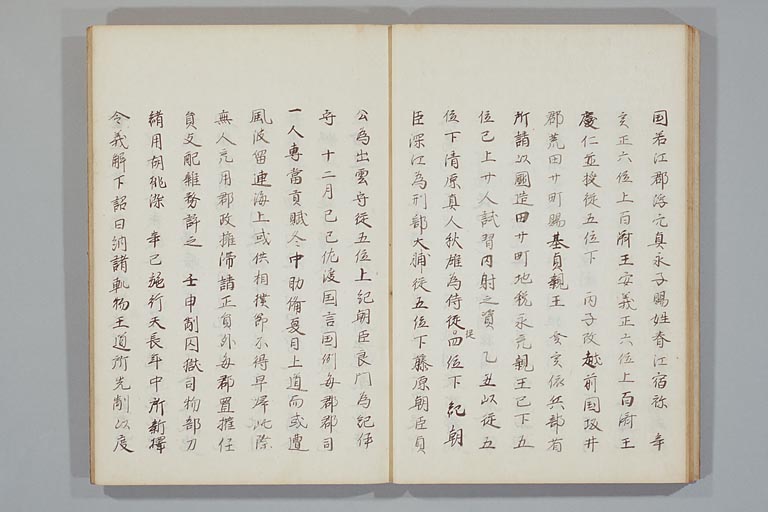 国若江郡浮穴真永子賜姓春江宿祢　辛
亥正六位上百済王安義正六位上百済王
慶仁並授従五位下　丙子改越前国坂井
郡荒田廿町賜基貞親王　癸亥依兵部省
所請以國造田廿町地税永充親王已下五
位已上廿人試習内射之資　乙丑以従五
位下清原真人秋雄為侍従四位下紀朝
従
臣深江為刑部大輔従五位下藤原朝臣貞
公為出雲守従五位上紀朝臣良門為紀伊
守　十二月己巳佐渡国言国例毎郡郡司
一人専當貢賦冬中勘備夏月上道而或遭
風波留連海上或供相撲節不得早帰此際
無人充用郡政擁滞請正員外毎郡置権任
員支配雑務許之　壬申削囚獄司物部刀
緒用胡桃染　辛巳施行天長年中所新擇
令義解下詔曰納諸軌物王道所先制以度